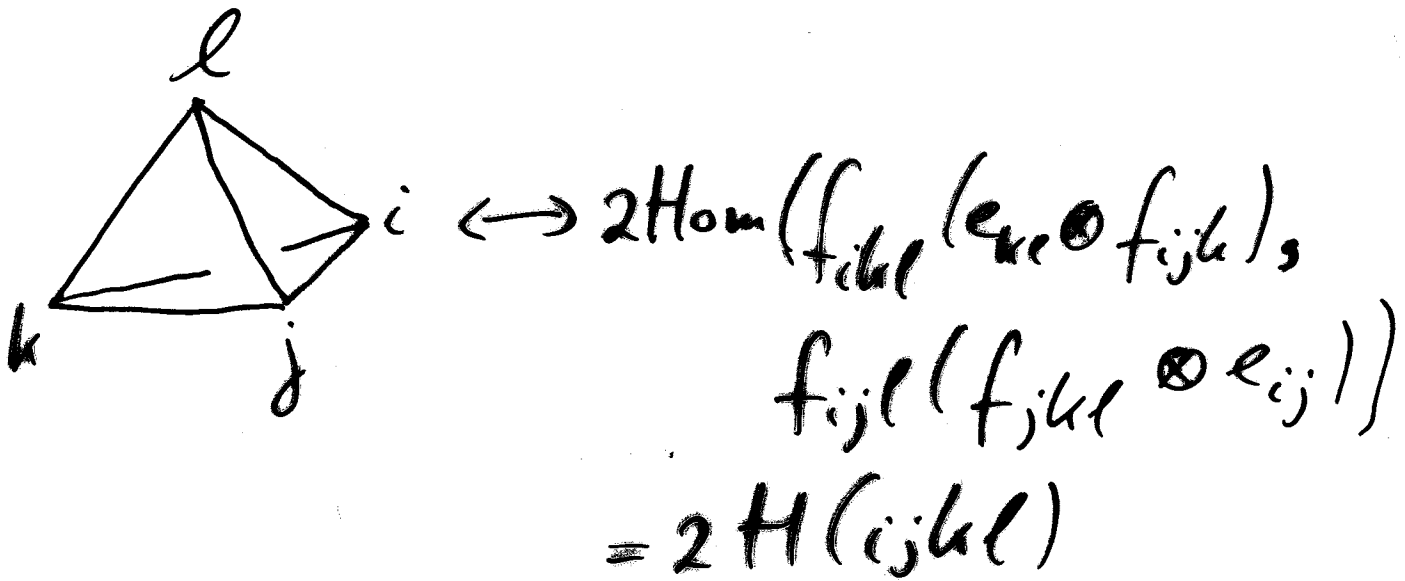 l
i ↔ 2Hom(f_{ikl}(e_{kl} ⊗ f_{ijk}),
k j f_{ijl}(f_{jkl} ⊗ e_{ij}))
= 2H(ijkl)